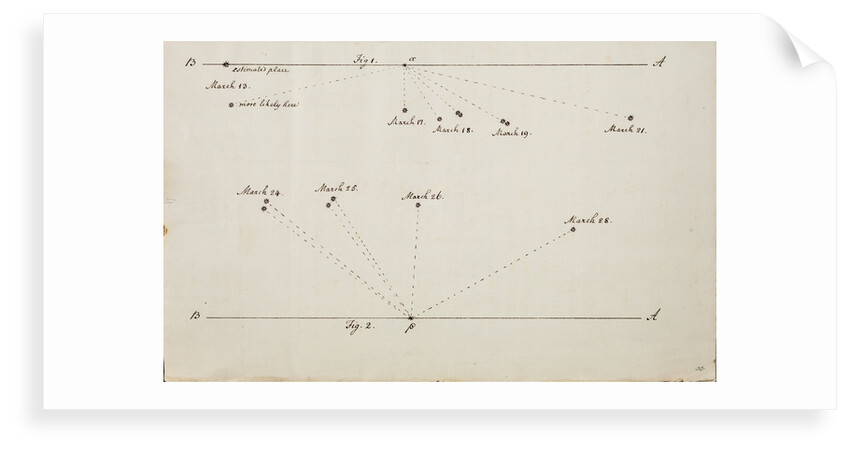 B Fig 1. α A
estimated place
March 13.
more likely here
March 17. March 18. March 19. March 21.
March 24. March 25. March 26. March 28.
B Fig. 2. β A